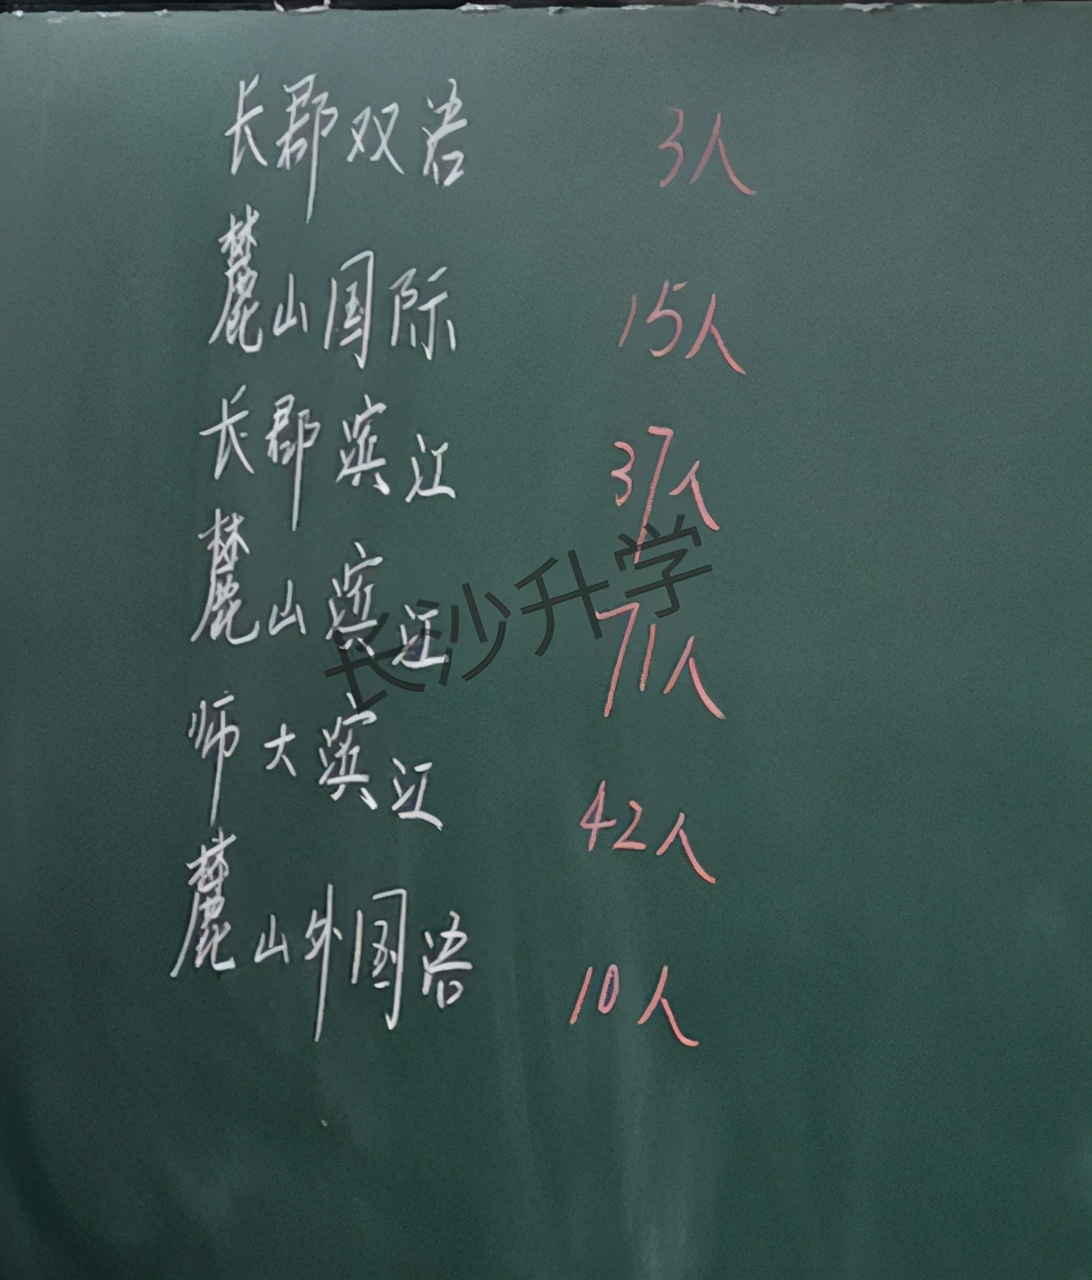 长郡双语 3人
麓山国际 15人
长郡滨江 37人
麓山滨江 71人
师大滨江 42人
麓山外国语 10人
长沙升学